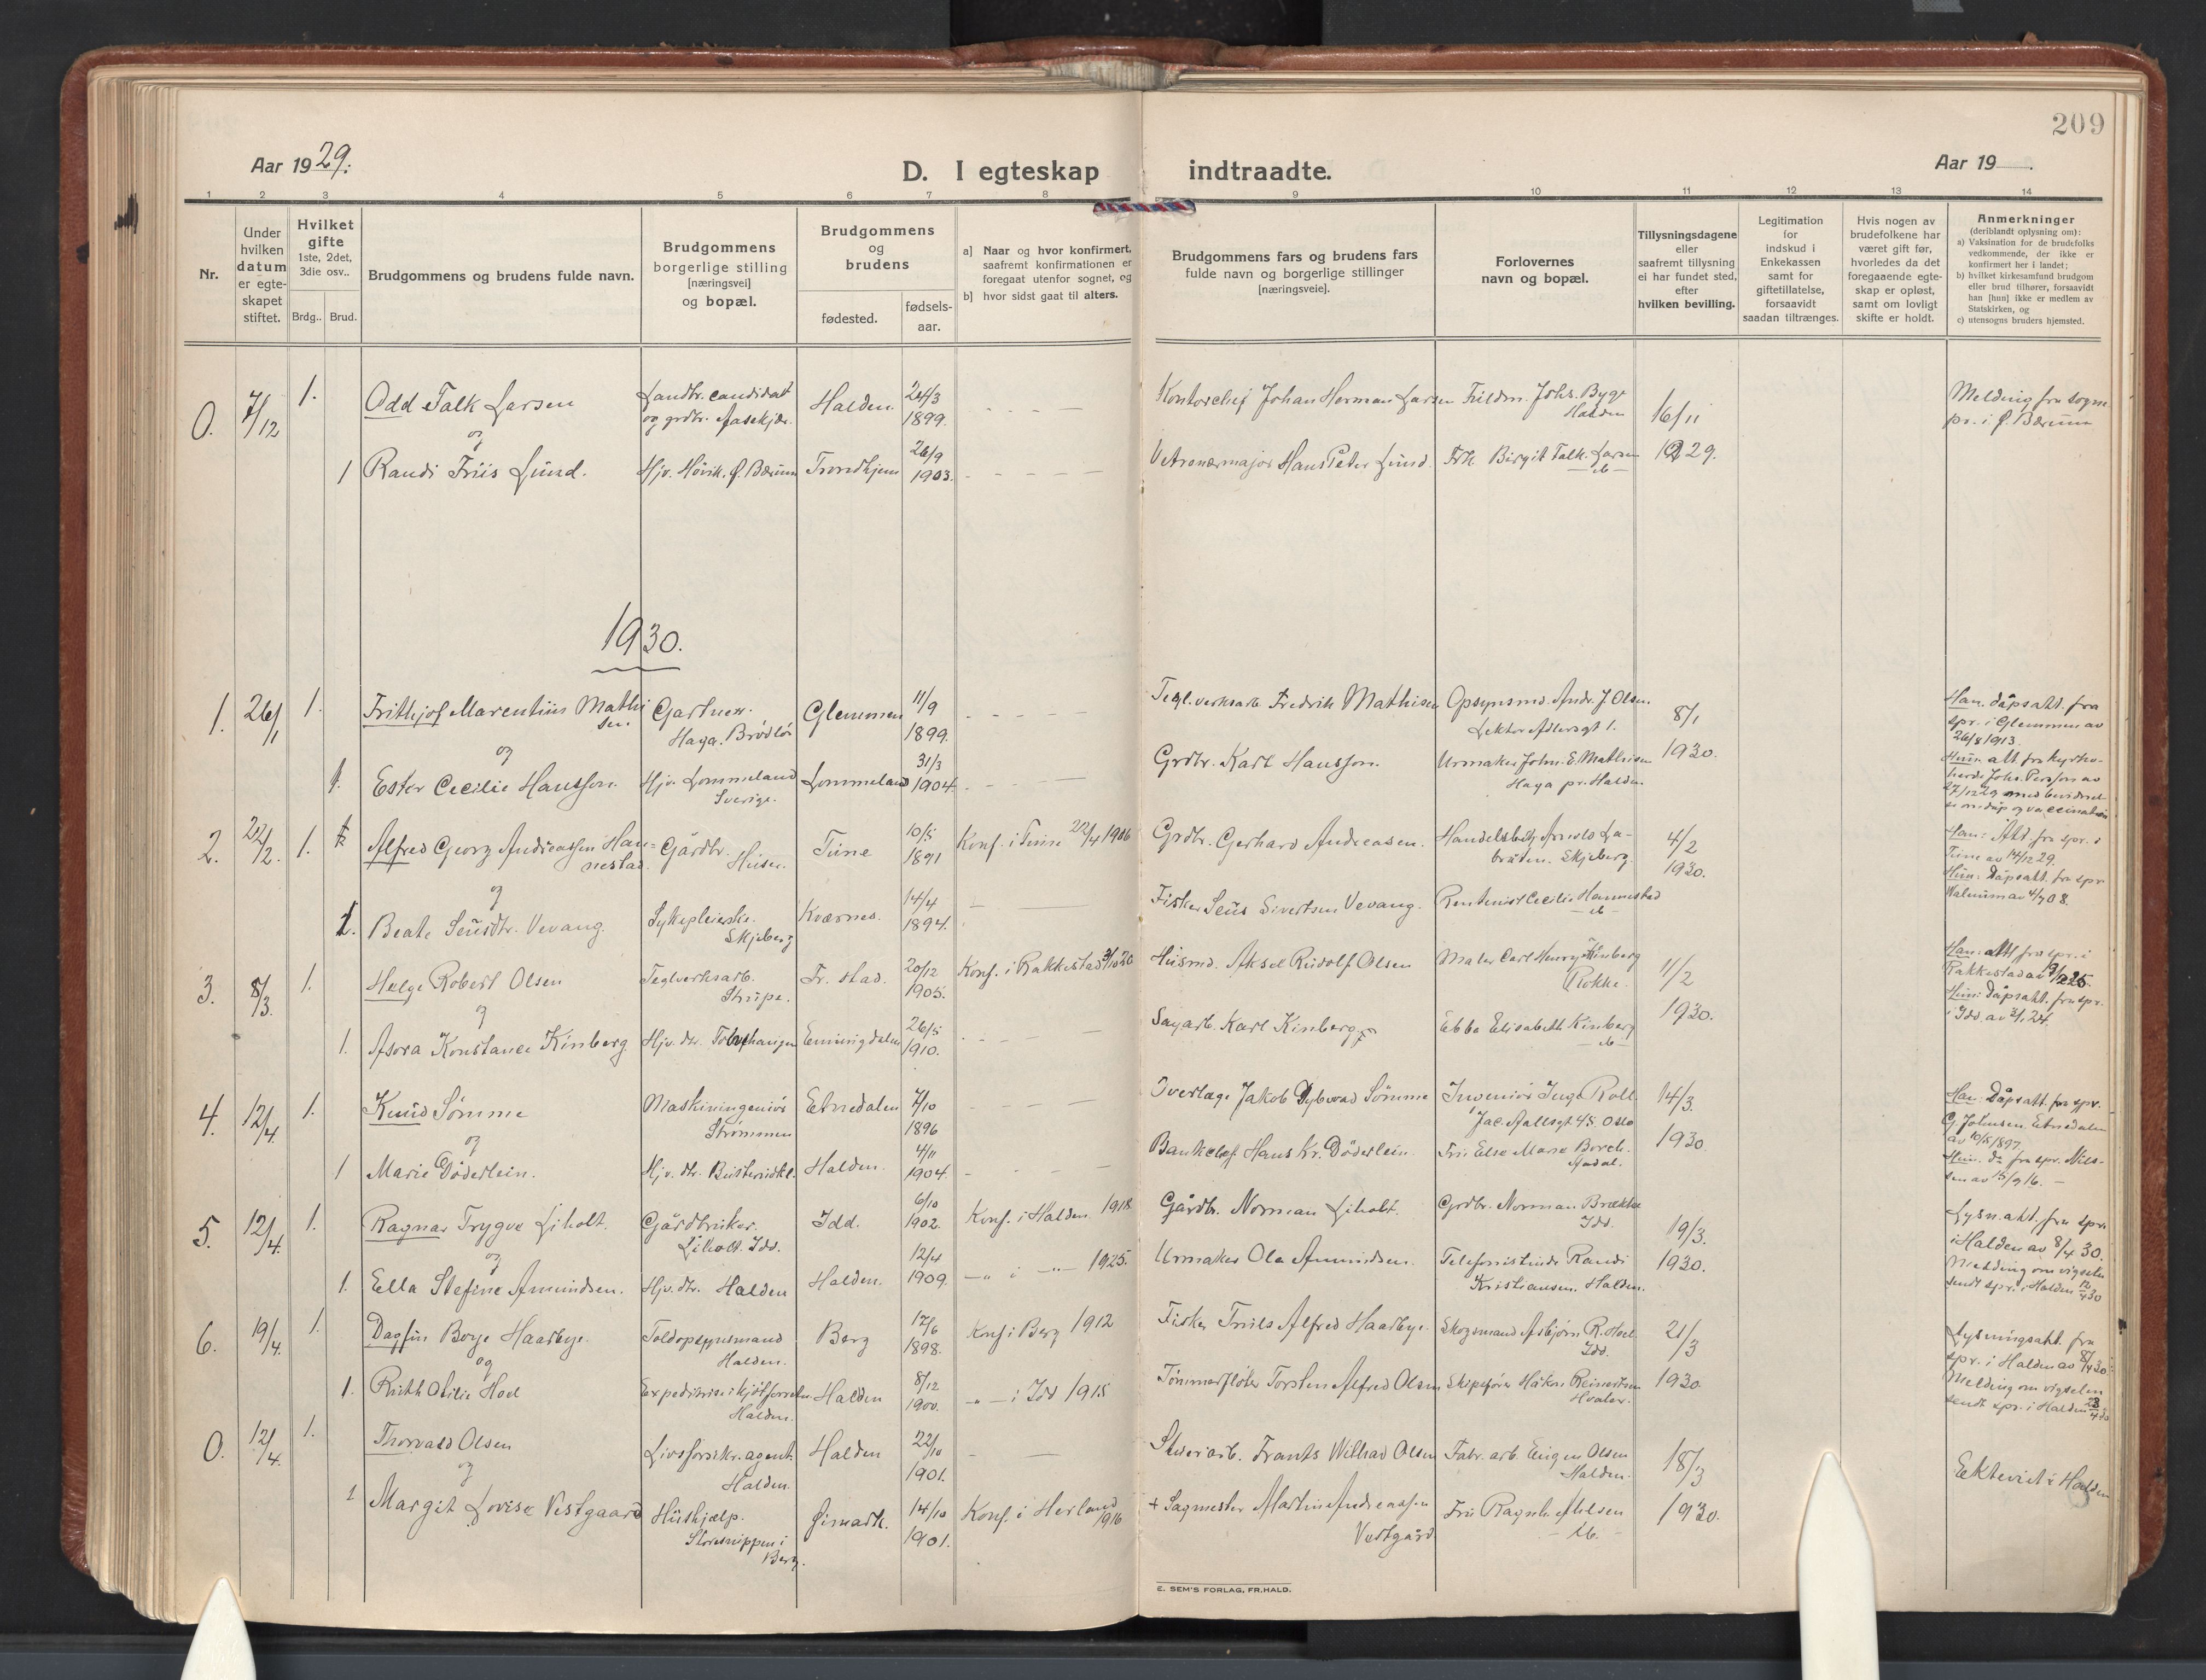 209
Aar 1929.
D. I egteskap indtraadte.
Aar 19
1 2 3 4 5 6 7 8 9 10 11 12 13 14
Nr.
Under
hvilken
datum
er egte-
skapet
stiftet.
Hvilket
gifte
1ste, 2det,
3die osv..
Brdg.. Brud.
Brudgommens og brudens fulde navn.
Brudgommens
borgerlige stilling
[næringsvei]
og bopæl.
Brudgommens
og
brudens
fødested.
fødsels-
aar.
a] Naar og hvor konfirmert,
saafremt konfirmationen er
foregaat utenfor sognet, og
b] hvor sidst gaat til alters.
Brudgommens fars og brudens fars
fulde navn og borgerlige stillinger
[næringsveie].
Forlovernes
navn og bopæl.
Tillysningsdagene
eller
saafremt tillysning
ei har fundet sted,
efter
hvilken bevilling.
Legitimation
for
indskud i
Enkekassen
samt for
giftetillatelse,
forsaavidt
saadan tiltrænges.
Hvis nogen av
brudefolkene har
været gift før,
hvorledes da det
foregaaende egte-
skap er opløst,
samt om lovligt
skifte er holdt.
Anmerkninger
(deriblandt oplysning om):
a) Vaksination for de brudefolks
vedkommende, der ikke er
konfirmert her i landet;
b) hvilket kirkesamfund brudgom
eller brud tilhører, forsaavidt
han [hun] ikke er medlem av
Statskirken, og
c) utensogns bruders hjemsted.
0. 7/12 1. Odd Falk Larsen
Landbr. candidat
og grdbr.
Halden. 24/3
1899.
Kontorchef Johan Herman Larsen
Halden
16/11
Melding fra sogne
pr. i Ø. Bærum
og
1 Randi Friis Lund.
Hjv. Høvik. Ø. Bærum Trondhjem 26/9
1903.
Veterinærmajor Hans Peter Lund. Frk Birgit Falk Larsen
1929.
1930.
1. 26/1 1. Frithjof Marentius Mathi
sen.
Gartner.
Haga.
Glemmen 11/9
1899.
Teglverksarb. Fredrik Mathisen Opsynsmd. Andr. J. Olsen.
Lektor Adlersgt 1.
8/1
1930.
Han. dåpsatt. fra
spr. i Glemmen av
26/8 1913.
og
1. Ester Cecilie Hansson.
Hjv. Lommeland
Sverige.
Lommeland 31/3
1904.
Grdbr. Karl Hansson. Urmaker John. E. Mathisen
Haga pr. Halden
2. 22/2. 1. Alfred Georg Andreassen Han-
nestad.
Gårdbr.
Tune 10/5
1891 Konf. i Tune 22/4 1906
Grdbr. Gerhard Andreasen.
Skjeberg.
4/2
1930.
Han: Att. fra spr. i
Tune av 14/12 29.
Hun: Dåpsatt. fra spr
av 4/7 08.
og
1. Beate Seusdtr. Vevang.
Sykepleierske.
Skjeberg
Kværnes. 14/4
1894.
Fisker Seus Sivertsen Vevang. Rentenist Cecilie Hannestad
3. 8/3. 1. Helge Robert Olsen
Teglverksarb.
Fr. stad. 20/12
1905.
Konf. i Rakkestad 3/10 20
Husmd. Aksel Rudolf Olsen Maler Carl Henry Kinberg
Rokke.
11/2
1930.
Han: att fra spr. i
Hun: Dåpsatt. fra spr.
og
1. Asora Konstance Kinberg
Enningdalen 26/5
1910.
Sagarb. Karl Kinberg Ebba Elisabeth Kinberg
4. 12/4. 1. Knud Sømme
Maskiningeniør
Strømmen
Etnedalen 7/10
1896
Overlæge Jakob Dybwad Sømme Ingeniør Inge Roll
Jac. Aallsgt 45. Oslo
14/3.
1930
Han: Dåpsatt. fra spr.
G. Johnsen Etnedalen
av 10/5 1897.
Hun. do fra spr. Nils-
sen av 15/9 16.
og
1 Marie Døderlein.
Halden. 4/11
1904.
Bankchef Hans Kr. Døderlein. Fru Else Marie Borch.
5. 12/4. 1. Ragnar Trygve Liholt.
Gårdbruker.
Liholt. Idd.
Idd. 6/10
1902. Konf. i Halden 1918
Gårdb. Norman Liholt. Grdbr. Norman Brække
Idd.
19/3.
1930.
Lysn. att. fra spr.
i Halden av 8/4 30.
Melding om vigselen
sendt spr. i Halden 12/4 30
og
1. Ella Stefine Amundsen.
Hjv. dtr. Halden Halden. 12/4
1909. 1925.
Urmaker Ola Amundsen. Telefonistinde Randi
Kristiansen. Halden.
6. 19/4. 1. Dagfin Borge Haarbye.
Toldopsynsmand
Halden.
Berg 17/6
1898. Konf. i Berg 1912
Fisker Truls Alfred Haarbye. Skogsmand Asbjørn R. Hoel
Idd.
21/3
1930.
Lysningsatt. fra
spr. i Halden av 8/4 30.
Melding om vigselen
sendt spr. i Halden
og
1. Ruth Otilie Hoel
Halden.
Halden 8/12
1900. i Idd 1915
Tømmerfløter Torsten Alfred Olsen Skipsfører Håkon Reinertsen
Hvaler.
0. 12/4. 1. Thorvald Olsen
Livsforsikr. agent.
Halden.
Halden 22/10
1901.
Frants Wilhad Olsen Fabr. arb. Eugen Olsen
Halden.
18/3
1930.
Ektevied i Halden
og
1 Margit Lovise Vestgaard
Hushjælp.
Storesnippen i
Berg.
Øimark. 14/10
1901.
Konf. i Herland
1916
+ Sagmester Martin Andreassen
Vestgård
Fru Ragnh.
E. SEM'S FORLAG, FR.HALD.